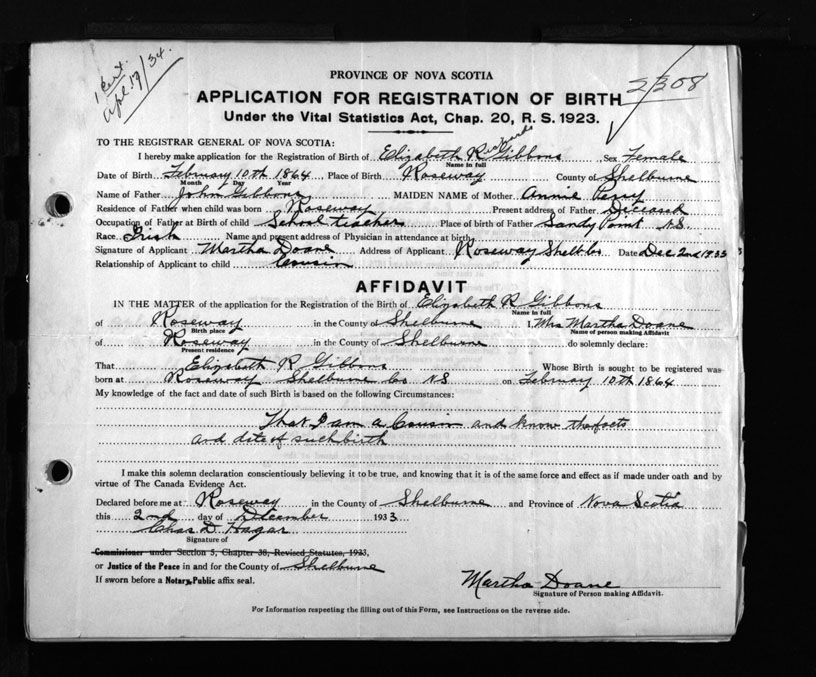 1 Cert.
Apl 19/34.
2308
PROVINCE OF NOVA SCOTIA
APPLICATION FOR REGISTRATION OF BIRTH
Under the Vital Statistics Act, Chap. 20, R. S. 1923.
TO THE REGISTRAR GENERAL OF NOVA SCOTIA:
I hereby make application for the Registration of Birth of Elizabeth R Gibbons Sex Female
Name in full
Date of Birth February 10th 1864 Place of Birth Roseway County of Shelburne
Month Day Year
Name of Father John Gibbons MAIDEN NAME of Mother Annie Perry
Residence of Father when child was born Roseway Present address of Father Deceased
Occupation of Father at Birth of child School teacher Place of birth of Father Sandy Point N.S.
Race Irish Name and present address of Physician in attendance at birth
Signature of Applicant Martha Doane Address of Applicant Roseway Shelb Co Date Dec 2nd 1933
Relationship of Applicant to child Cousin
AFFIDAVIT
IN THE MATTER of the application for the Registration of the Birth of Elizabeth R Gibbons
Name in full
of Roseway in the County of Shelburne I, Mrs Martha Doane
Birth place Name of person making Affidavit
of Roseway in the County of Shelburne do solemnly declare:
Present residence
That Elizabeth R Gibbons Whose Birth is sought to be registered was
born at Roseway Shelburne Co NS on February 10th 1864
My knowledge of the fact and date of such Birth is based on the following Circumstances:
That I am a Cousin and know the facts
and date of such birth
I make this solemn declaration conscientiously believing it to be true, and knowing that it is of the same force and effect as if made under oath and by
virtue of The Canada Evidence Act.
Declared before me at Roseway in the County of Shelburne and Province of Nova Scotia
this 2nd day of December 1933
Chas D. Hagar
Signature of
Commissioner under Section 5, Chapter 38, Revised Statutes, 1923,
or Justice of the Peace in and for the County of Shelburne
If sworn before a Notary Public affix seal.
Martha Doane
Signature of Person making Affidavit.
For Information respecting the filling out of this Form, see Instructions on the reverse side.